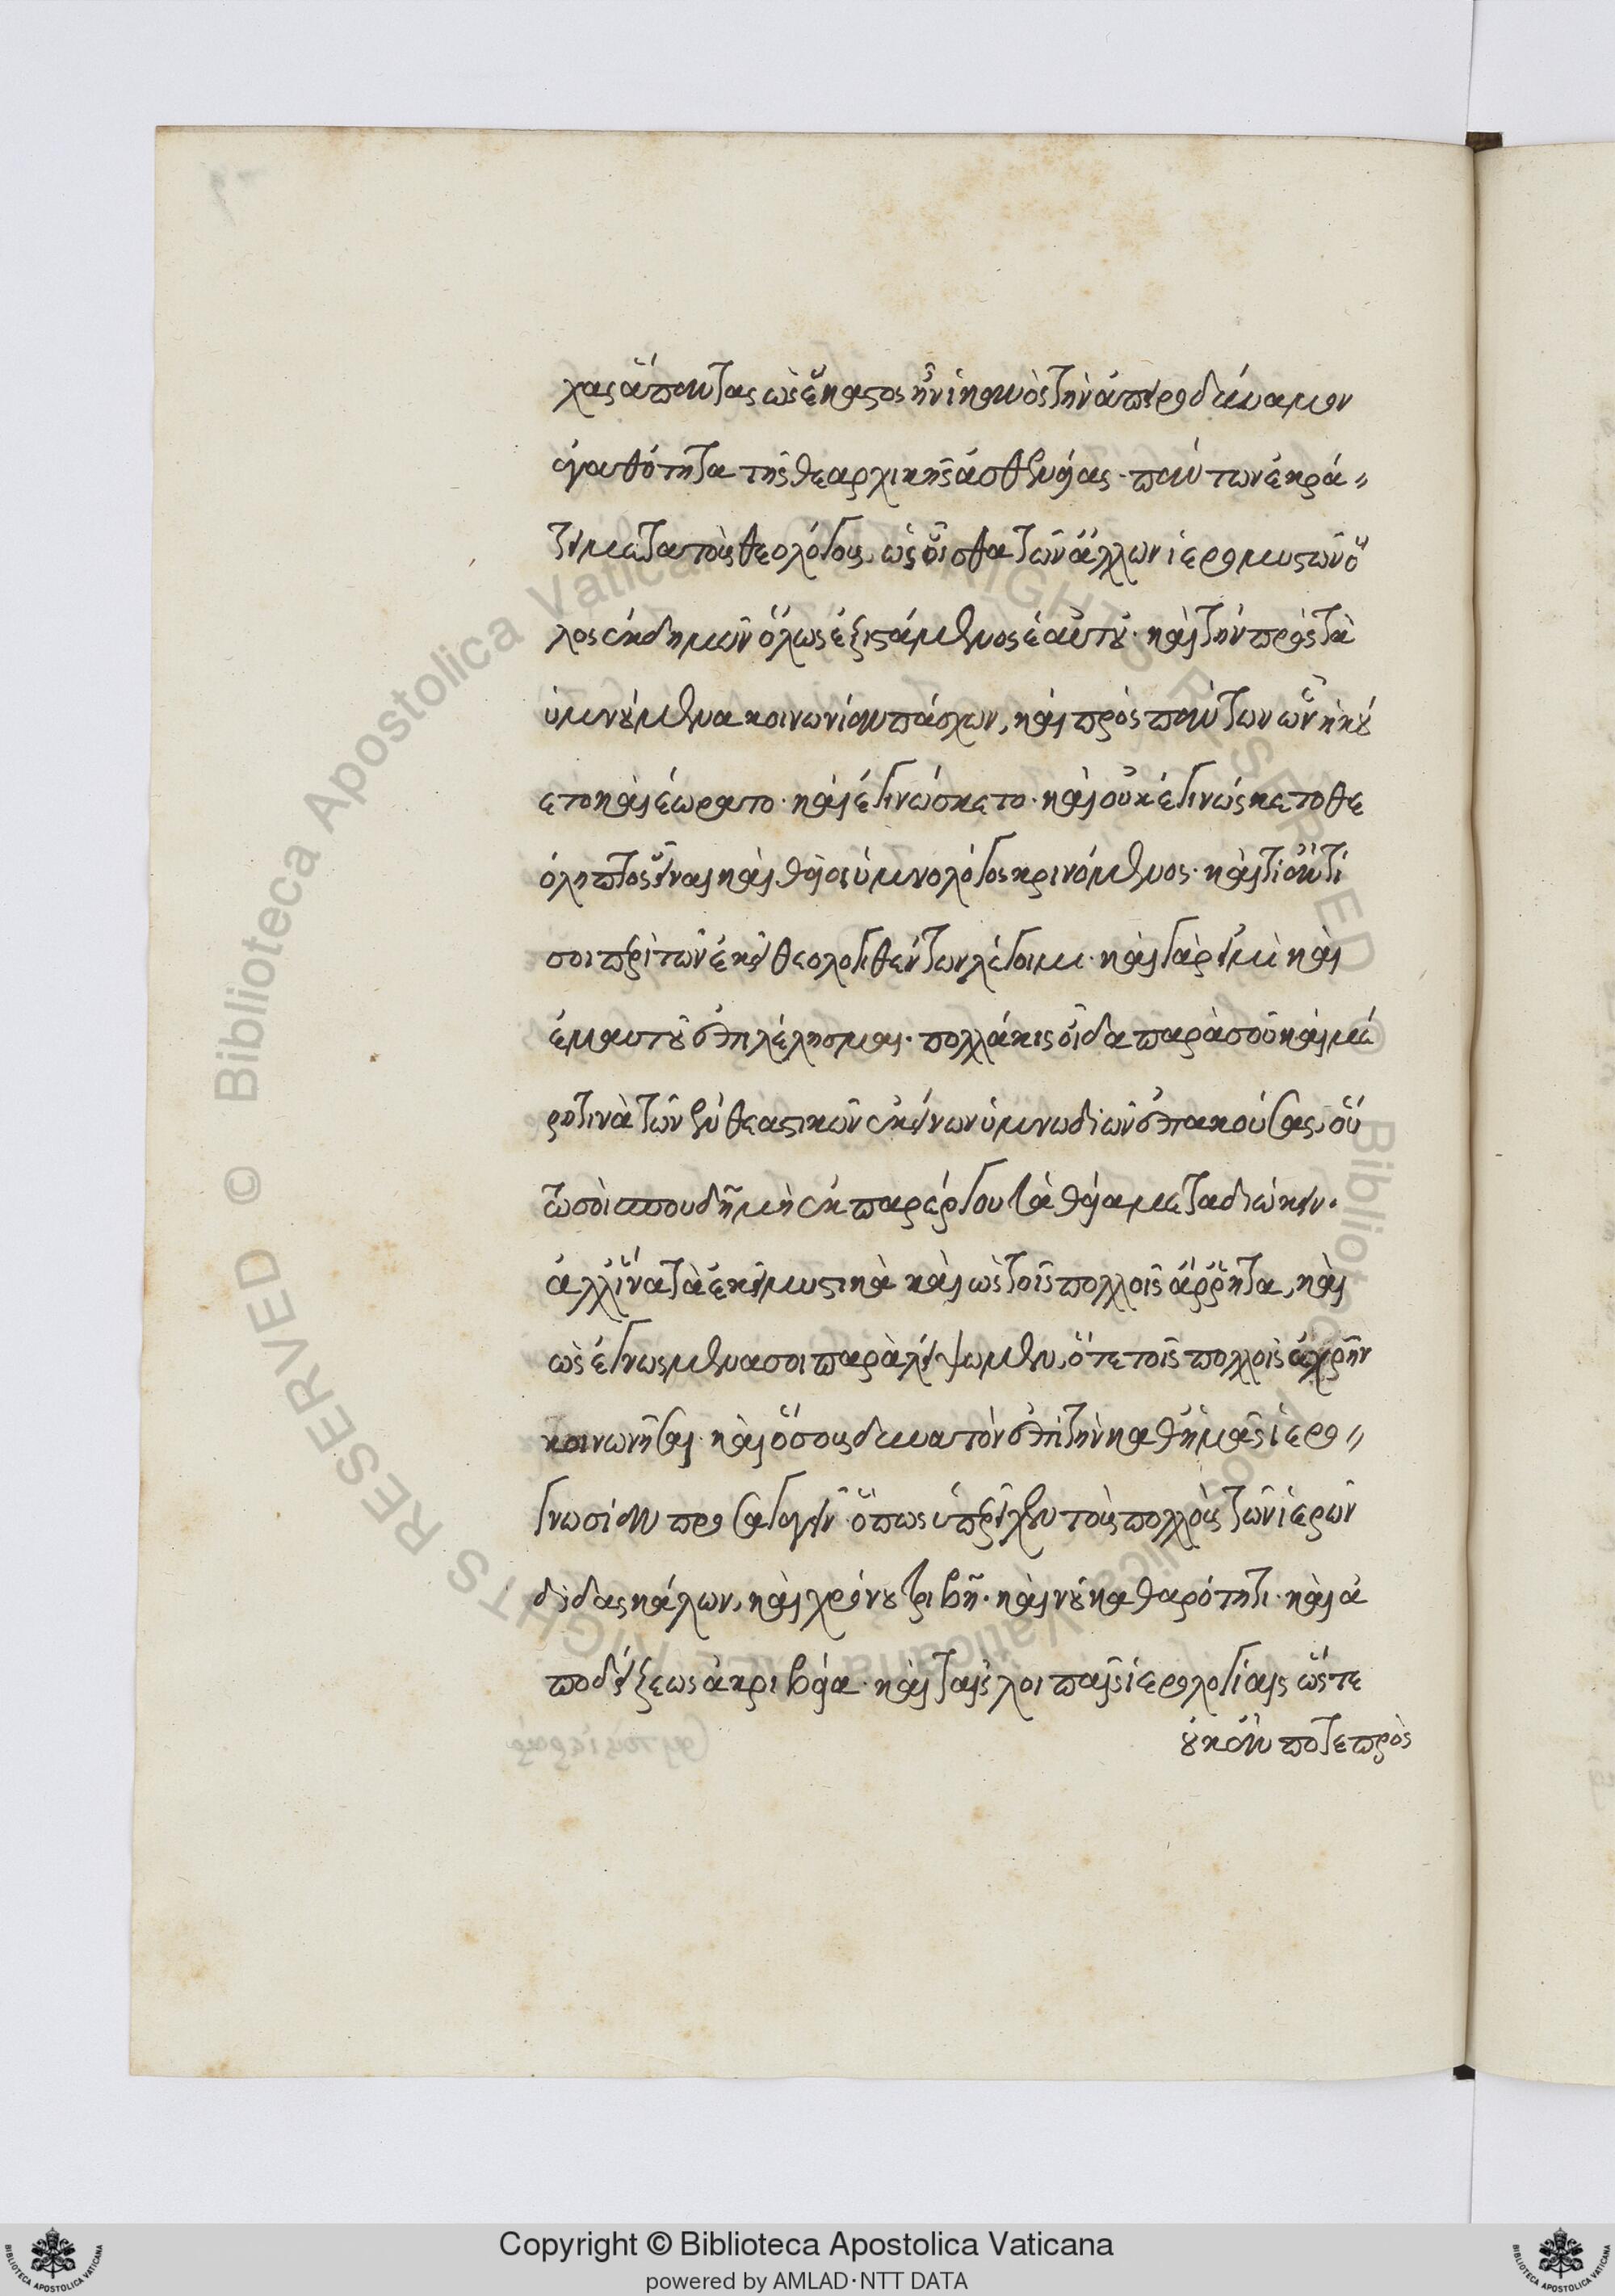 χας ἅπαντας ὡς ἕκαστος ἦν ἱκανὸς τὴν ἀπειροδύναμον
ἀγαθότητα τῆς θεαρχικῆς ἀσθενείας· πάντων ἐκρά〃
τει μετὰ τοὺς θεολόγους, ὡς οἶσθα τῶν ἄλλων ἱερομυστῶν ὅ
λος ἐκδημῶν ὅλως ἐξιστάμενος ἑαυτοῦ· καὶ τὴν πρὸς τὰ
ὑμνούμενα κοινωνίαν πάσχων, καὶ πρὸς πάντων ὧν ἠκού
ετο καὶ ἑώρατο· καὶ ἐγινώσκετο· καὶ οὐκ ἐγινώσκετο θε
όληπτος εἶναι καὶ θεῖος ὑμνολόγος κρινόμενος· καὶ τί ἄν τί
σοι περὶ τῶν ἐκεῖ θεολογηθέντων λέγοιμι· καὶ γὰρ εἰ μὴ καὶ
ἐμαυτοῦ ἐπιλέλησμαι· πολλάκις οἶδα παρὰ σοῦ καὶ μέ
ρη τινὰ τῶν ἐνθεαστικῶν ἐκείνων ὑμνωδιῶν ἐπακούσας, οὕ
τω σοι σπουδὴ μὴ ἐκ παρέργου τὰ θεῖα μεταδιώκειν·
ἀλλ' ἵνα τὰ ἐκεῖ μυστικὰ καὶ ὡς τοῖς πολλοῖς ἄῤῥητα, καὶ
ὡς ἐγνωσμένα σοι παραλείψωμεν, ὅτε τοῖς πολλοῖς ἐχρῆν
κοινωνῆσαι· καὶ ὅσους δυνατὸν ἐπὶ τὴν καθ' ἡμᾶς ἱερο〃
γνωσίαν προσαγαγεῖν· ὅπως ὑπερεῖχεν τοὺς πολλοὺς τῶν ἱερῶν
διδασκάλων, καὶ χρόνου τριβῇ· καὶ νοῦ καθαρότητι· καὶ ἀ
ποδείξεως ἀκριβεία· καὶ ταῖς λοιπαῖς ἱερολογίαις ὥστε
οὐκ ἄν ποτε πρὸς
Copyright © Biblioteca Apostolica Vaticana
powered by AMLAD·NTT DATA